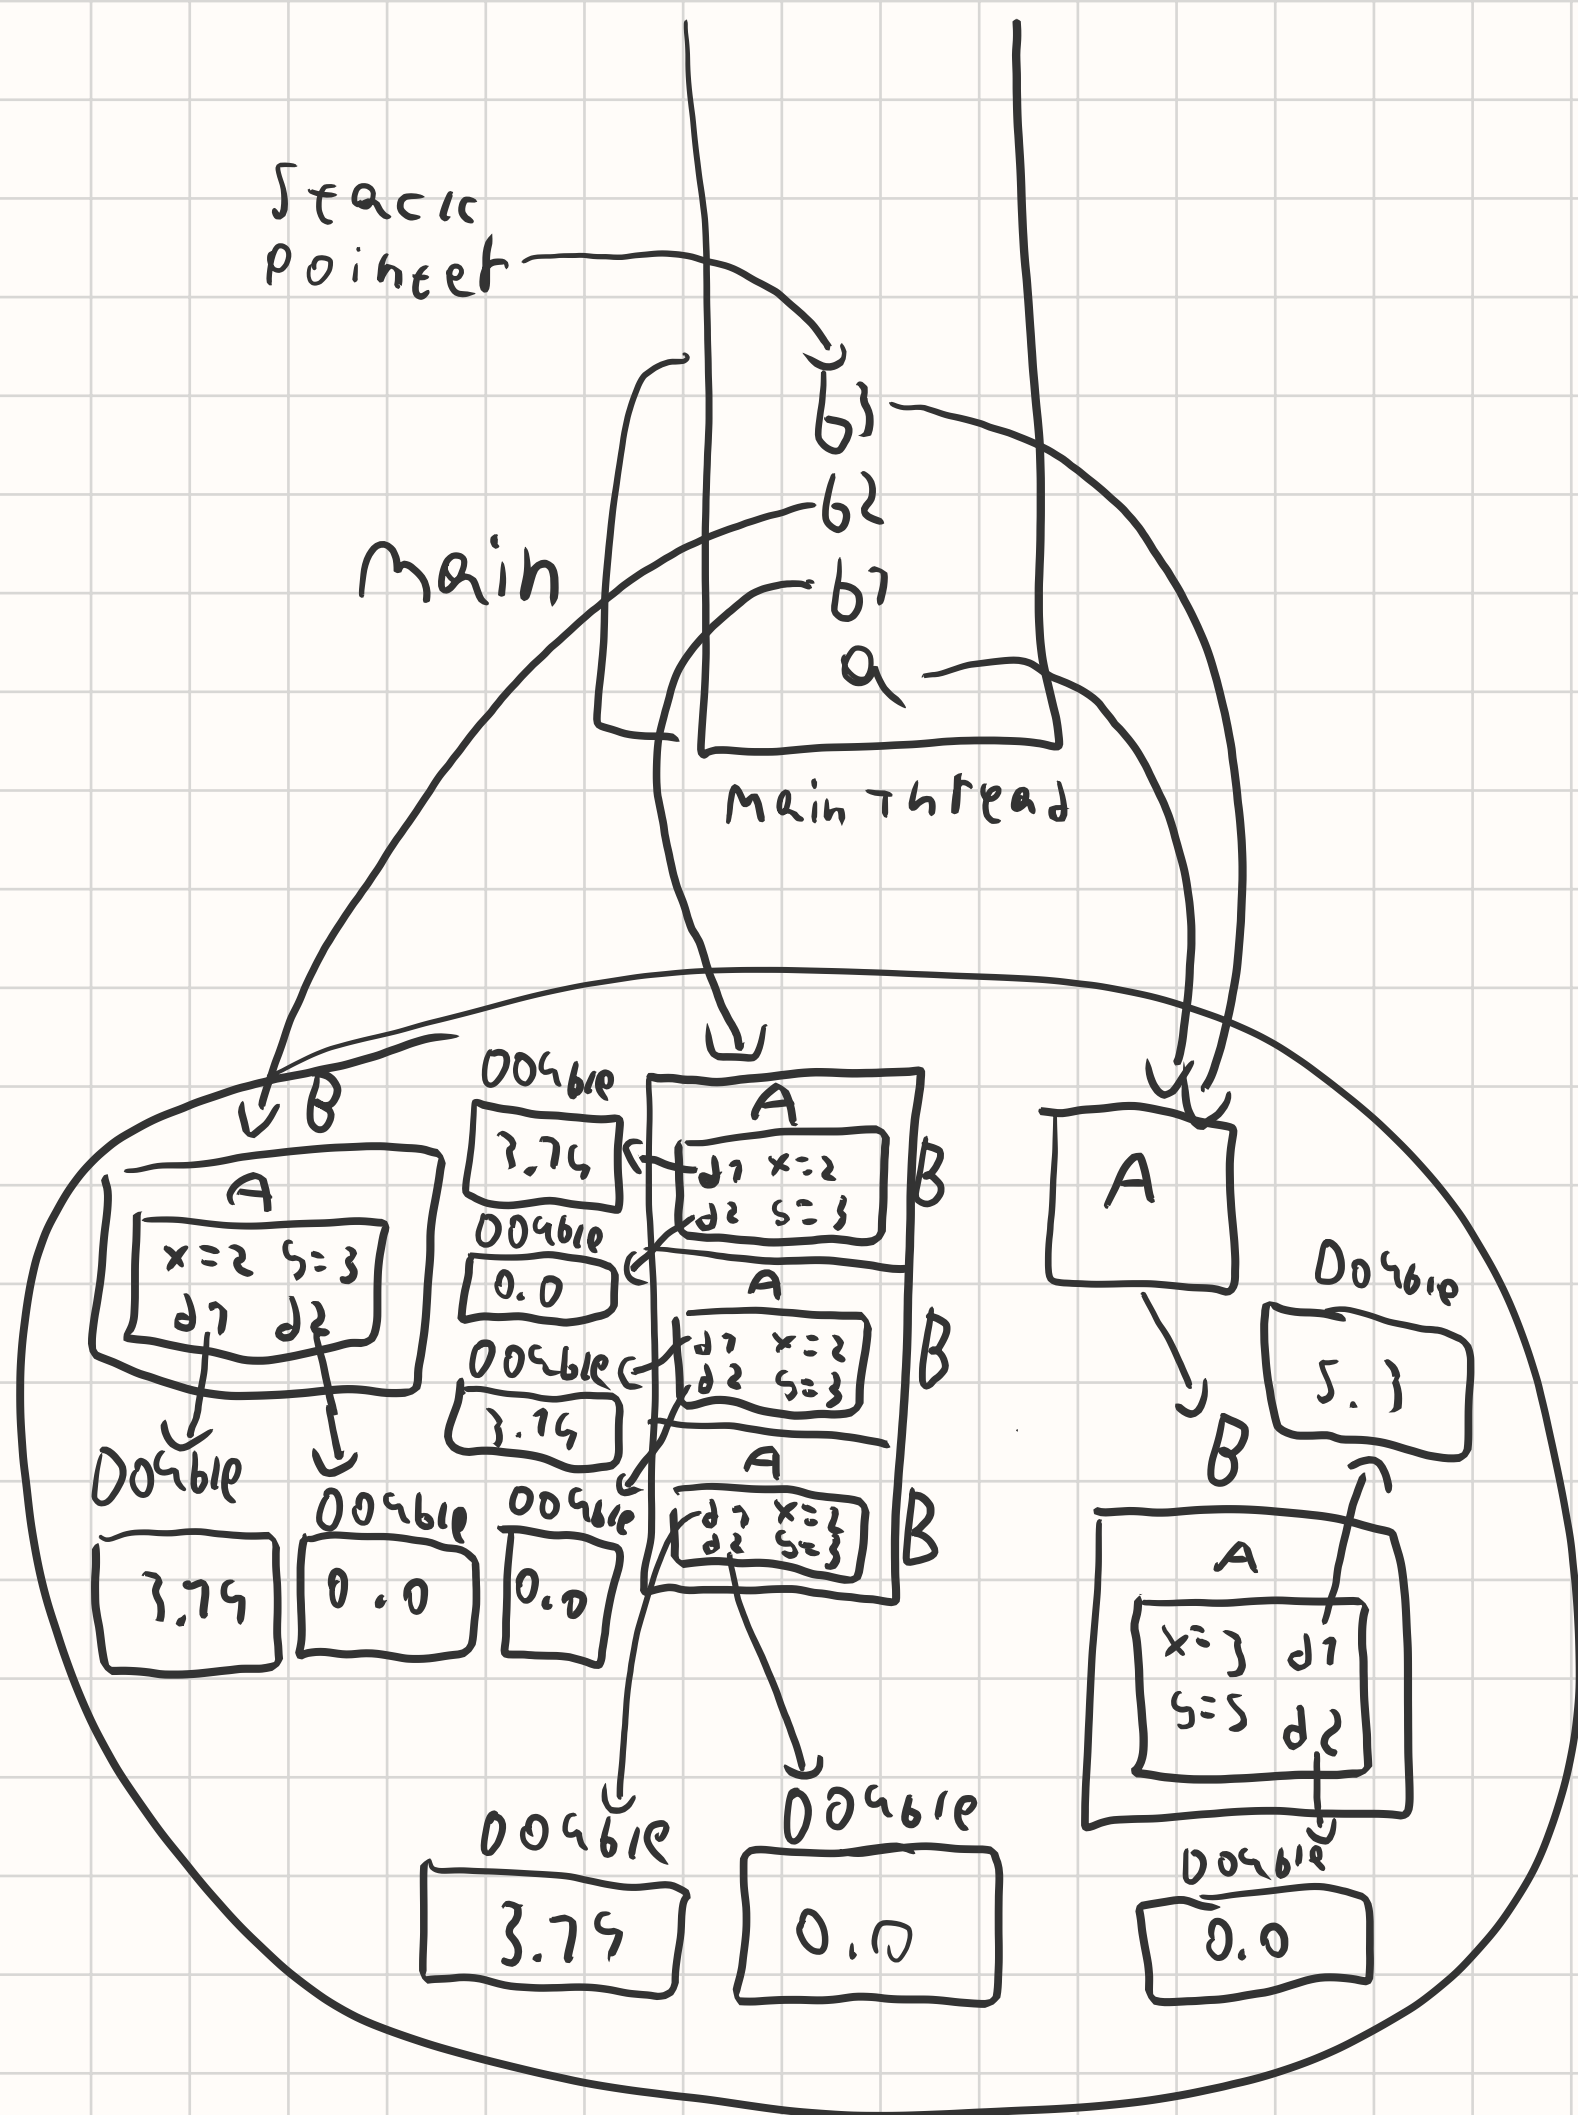 Stack
Pointer
b3
b2
b1
a
Main
Main Thread
B
A
x=2 y=3
d1 d2
Double
3.14
Double
0.0
Double
3.14
Double
0.0
Double
3.14
Double
0.0
A
d1 x=2
d2 y=3
B
A
d1 x=2
d2 y=3
B
A
d1 x=2
d2 y=3
B
Double
3.14
Double
0.0
A
B
Double
5.3
A
x=3 d1
y=5 d2
Double
0.0